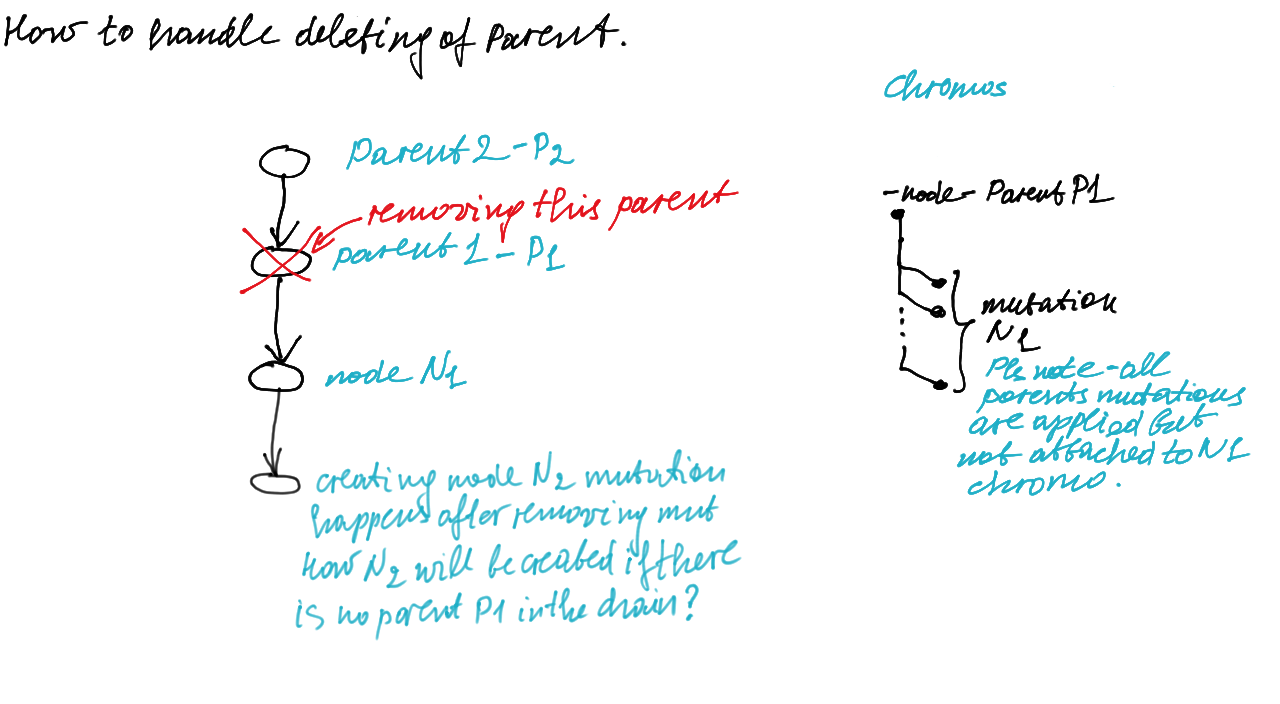 How to handle deleting of parent.
Chromos
Parent 2 - P2
removing this parent
parent 1 - P1
node N1
creating node N2 mutation
happens after removing mut
How N2 will be created if there
is no parent P1 in the chain?
- node - Parent P1
mutation
N1
Pls note - all
parents mutations
are applied but
not attached to N1
chromo.